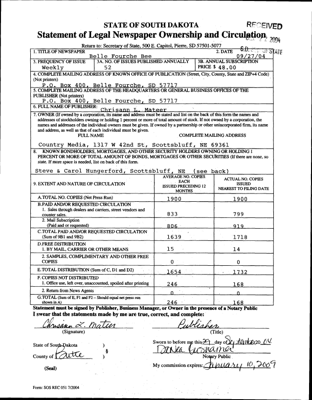 STATE OF SOUTH DAKOTA
RECEIVED
Statement of Legal Newspaper Ownership and Circulation
Return to: Secretary of State, 500 E. Capitol, Pierre, SD 57501-5077
1. TITLE OF NEWSPAPER
2. DATE
S.D. OF STATE
Belle Fourche Bee
09/27/04
3. FREQUENCY OF ISSUE
3A. NO. OF ISSUES PUBLISHED ANNUALLY
3B. ANNUAL SUBSCRIPTION
Weekly
52
PRICE $ 48.00
4. COMPLETE MAILING ADDRESS OF KNOWN OFFICE OF PUBLICATION (Street, City, County, State and ZIP+4 Code)
(Not printers)
P.O. Box 400, Belle Fourche, SD 57717
5. COMPLETE MAILING ADDRESS OF THE HEADQUARTERS OR GENERAL BUSINESS OFFICES OF THE
PUBLISHER (Not printer)
P.O. Box 400, Belle Fourche, SD 57717
6. FULL NAME OF PUBLISHER:
Chrisann L. Mateer
7. OWNER (If owned by a corporation, its name and address must be stated and list on the back of this form the names and
addresses of stockholders owning or holding 1 percent or more of total amount of stock. If not owned by a corporation, the
names and addresses of the individual owners must be given. If owned by a partnership or other unincorporated firm, its name
and address, as well as that of each individual must be given.
FULL NAME
COMPLETE MAILING ADDRESS
Country Media, 1317 W 42nd St, Scottsbluff, NE 69361
8. KNOWN BONDHOLDERS, MORTGAGES, AND OTHER SECURITY HOLDERS OWNING OR HOLDING 1
PERCENT OR MORE OF TOTAL AMOUNT OF BONDS, MORTGAGES OR OTHER SECURITIES (If there are none, so
state. If more space is needed, list on back of this form.
Steve & Carol Hungerford, Scottsbluff, NE (see back)
9. EXTENT AND NATURE OF CIRCULATION
AVERAGE NO. COPIES
EACH
ISSUED PRECEDING 12
MONTHS
ACTUAL NO. COPIES
ISSUED
NEAREST TO FILING DATE
A. TOTAL NO. COPIES (Net Press Run)
1900
1900
B. PAID AND/OR REQUESTED CIRCULATION
1. Sales through dealers and carriers, street vendors and
counter sales.
833
799
2. Mail Subscription
(Paid and or requested)
806
919
C. TOTAL PAID AND/OR REQUESTED CIRCULATION
(Sum of 9B1 and 9B2)
1639
1718
D. FREE DISTRIBUTION
1. BY MAIL, CARRIER OR OTHER MEANS
15
14
2. SAMPLES, COMPLIMENTARY AND OTHER FREE
COPIES
0
0
E. TOTAL DISTRIBUTION (Sum of C, D1 and D2)
1654
1732
F. COPIES NOT DISTRIBUTED
1. Office use, left over, unaccounted, spoiled after printing
246
168
2. Return from News Agents
0
0
G. TOTAL (Sum of E, F1 and F2 - Should equal net press run
shown in A)
246
168
Statement must be signed by Publisher, Business Manager, or Owner in the presence of a Notary Public
I swear that the statements made by me are true, correct, and complete:
Chrisann L. Mateer
Publisher
(Signature)
(Title)
State of South Dakota )
Sworn to before me this
day of
County of Butte )
§
Notary Public
(Seal)
My commission expires: January 10, 2009
Form: SOS REC 051 7/2004